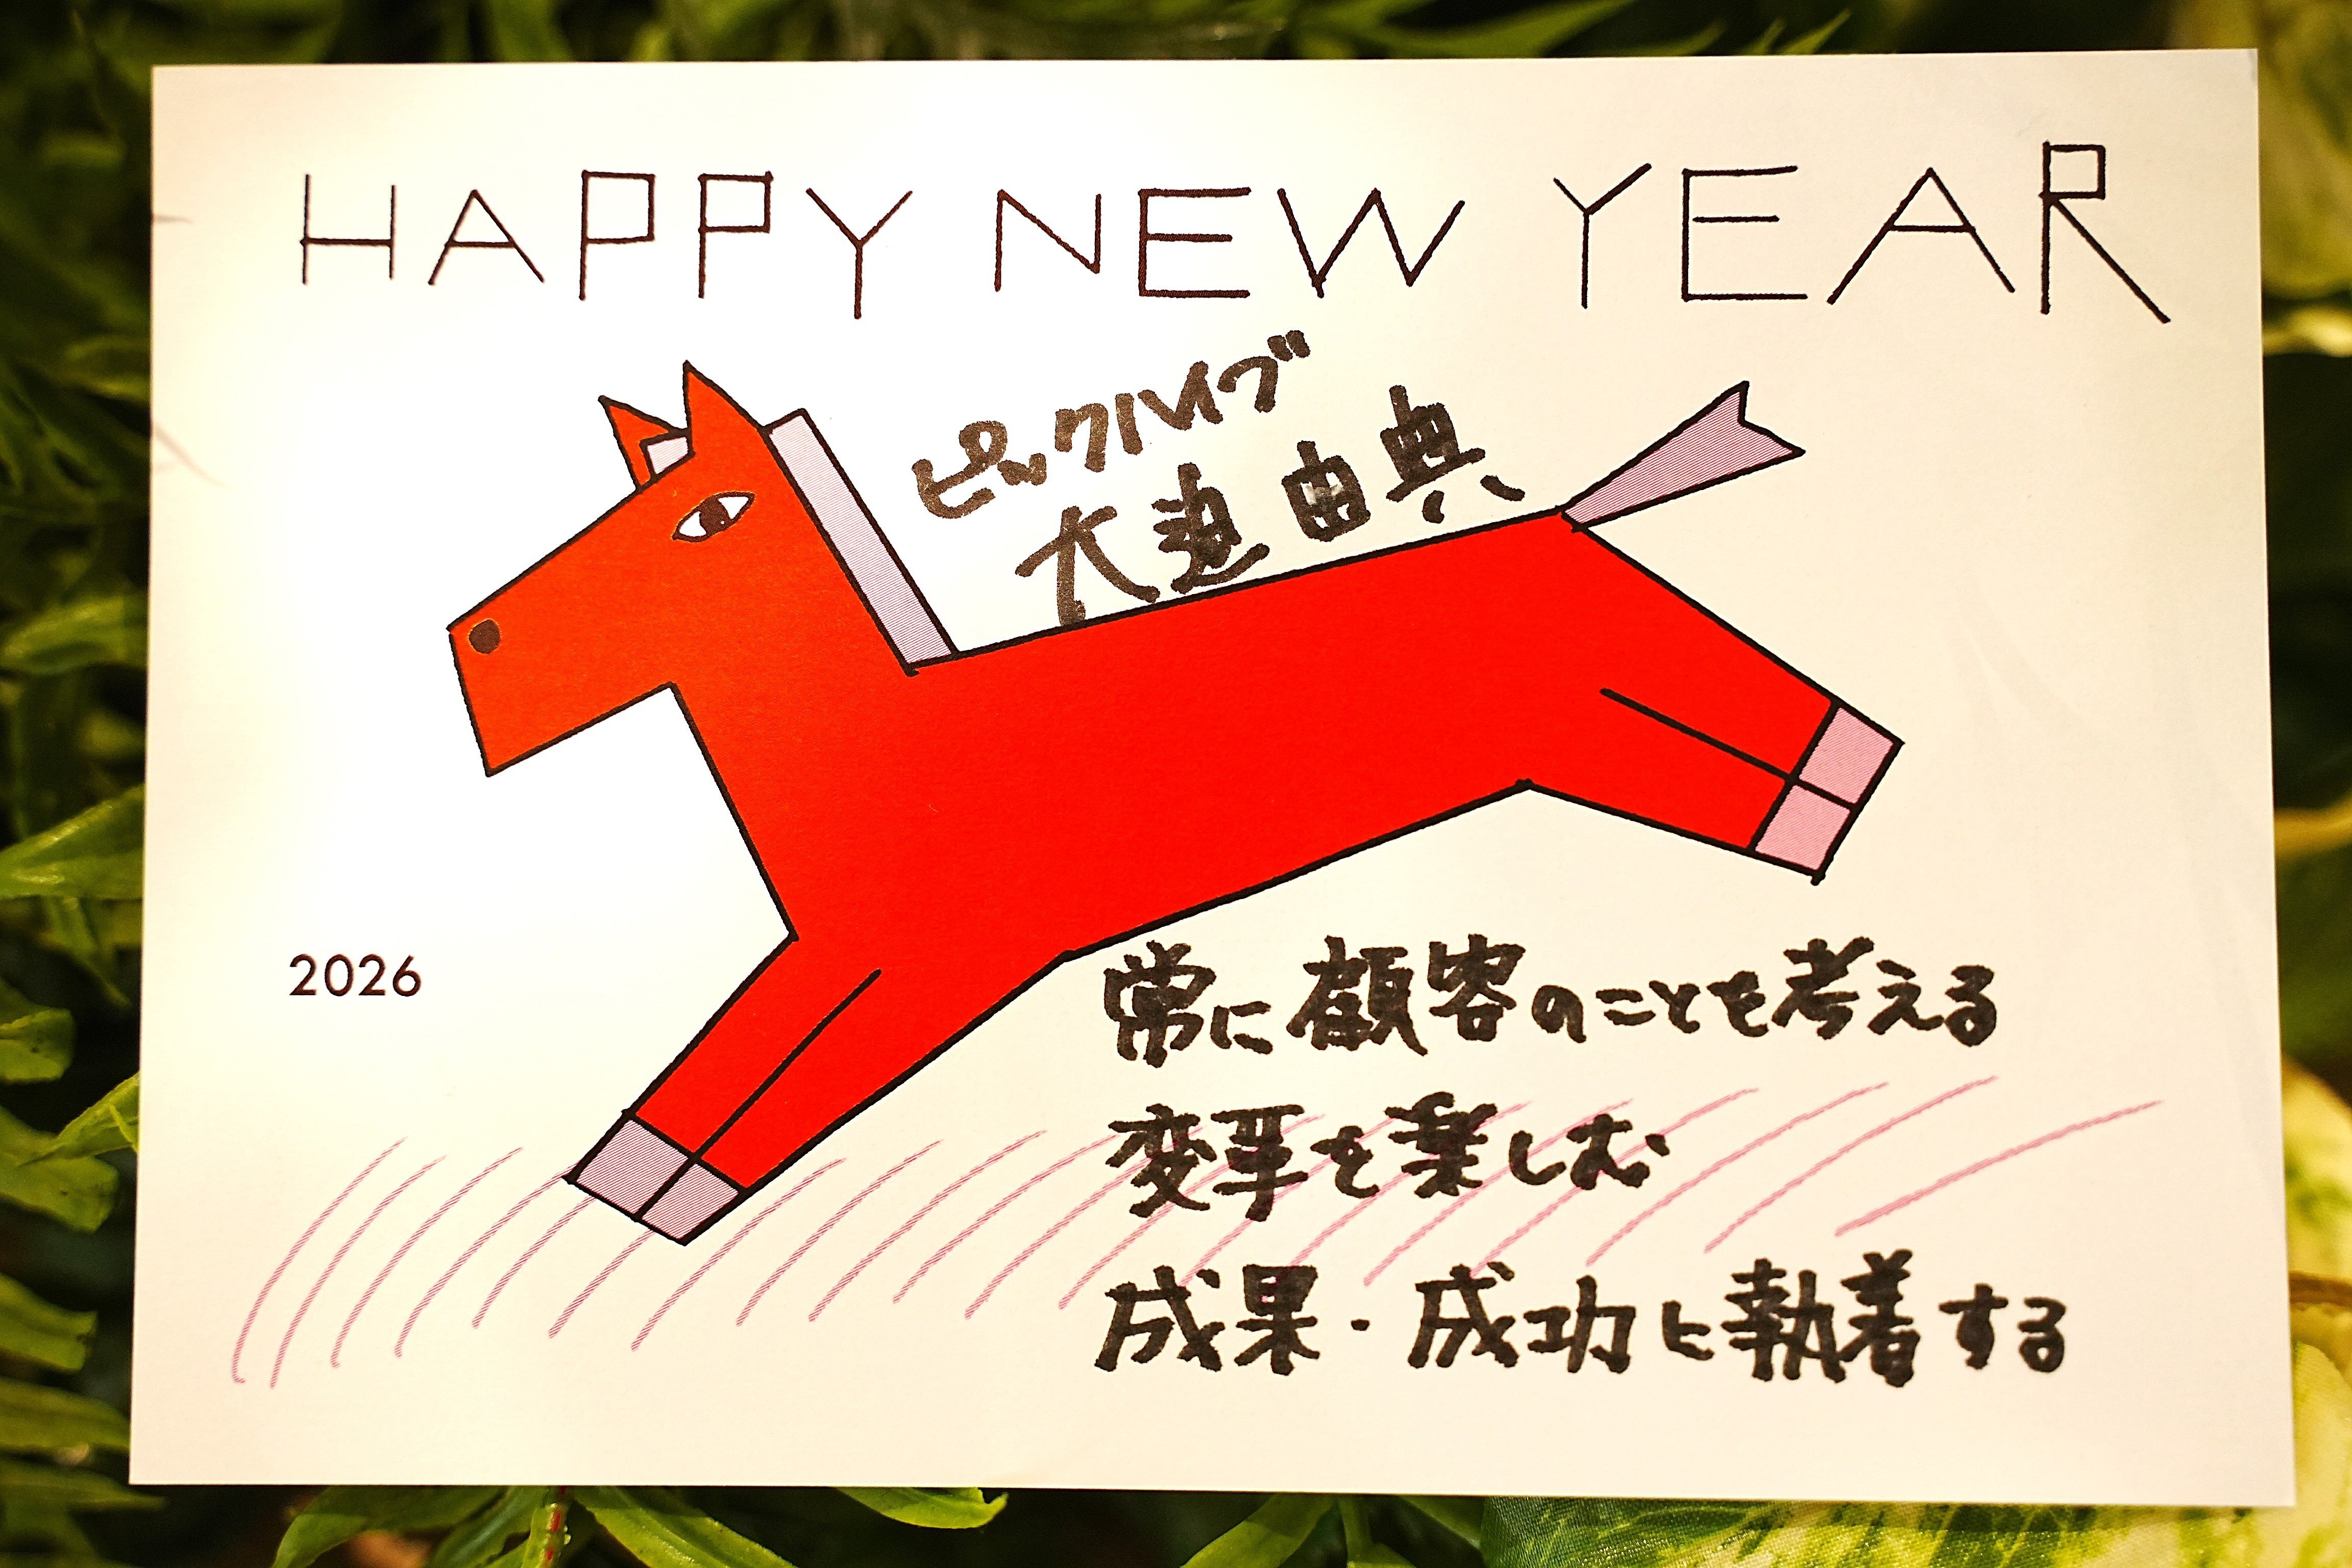 HAPPY NEW YEAR
ピックハイブ
大迫 由典
2026
常に顧客のことを考える
変革を楽しむ
成果・成功に執着する